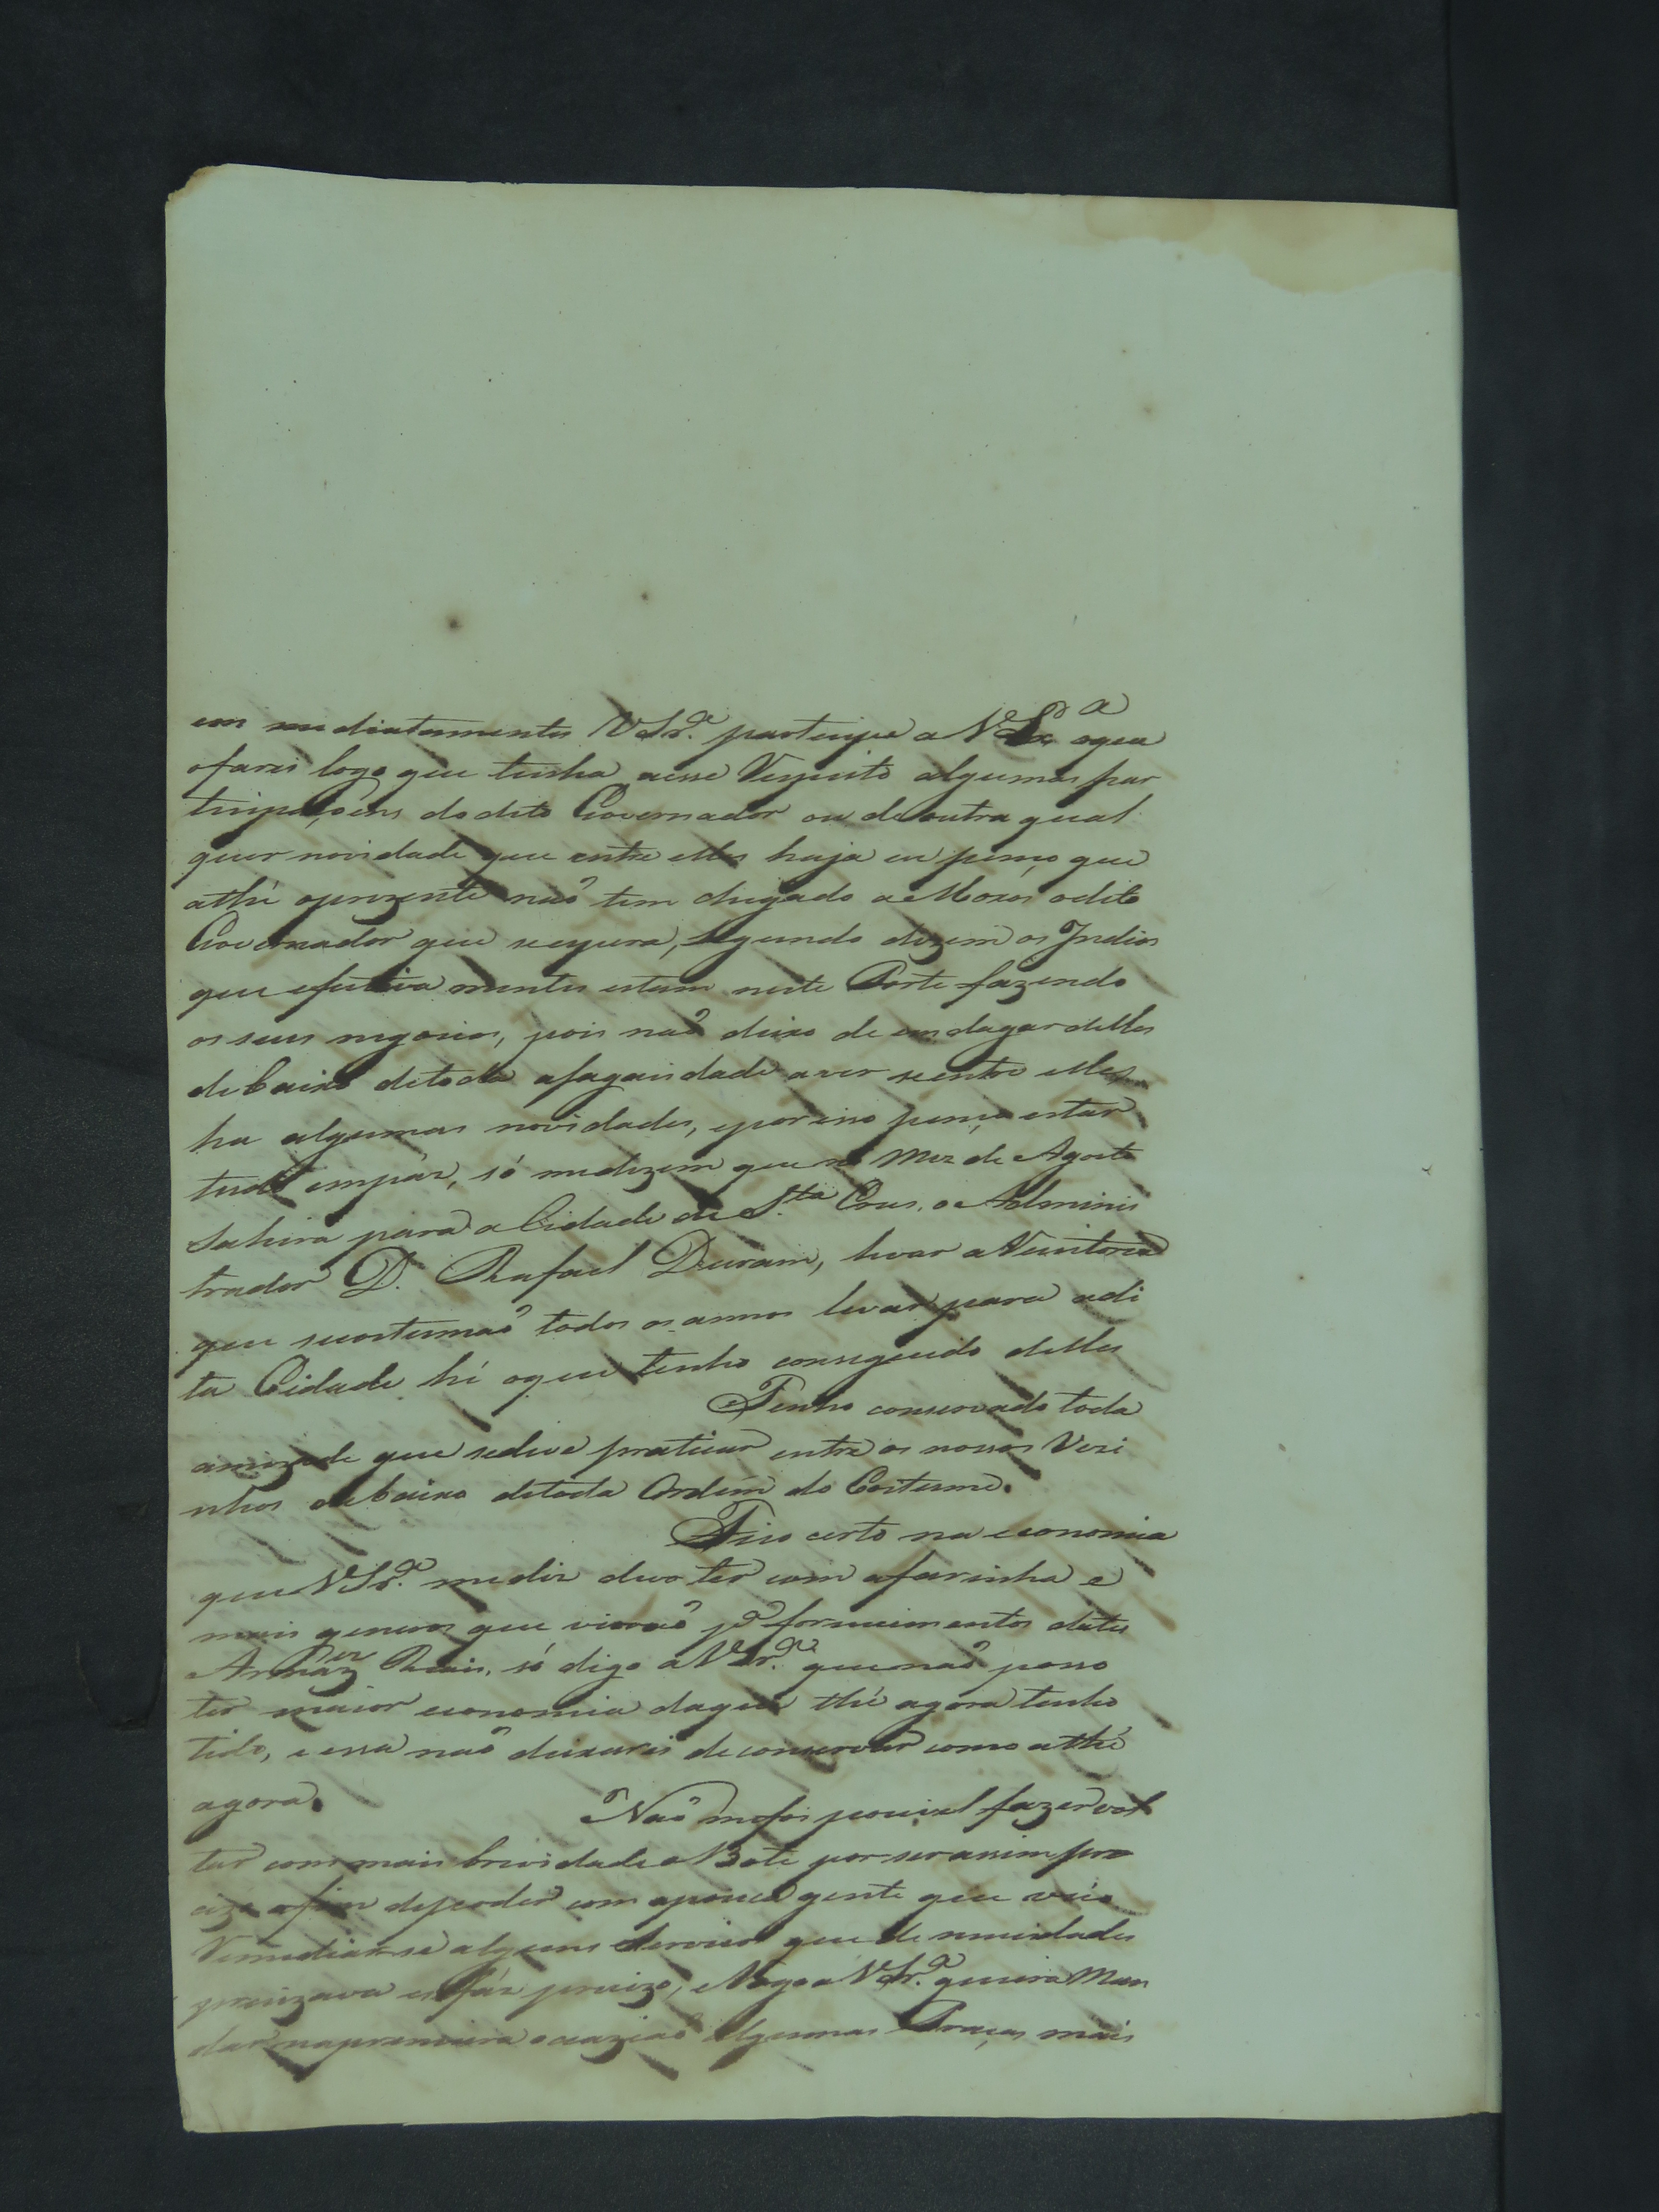 em mediatamente VSr.ª partecipe a V Ex.ª oque
ofarei logo que tenha nesse Respeito algumas par
tecipaçoens do dito Governador ou de outra qual
quer novidade que entre elles haja eu penço que
athé aprezente naõ tem chegado a Moxos odito
Governador que seespera, segundo dizem os Indios
que efectiva mentes estam neste Porto fazendo
os seus negocios, pois naõ deixo de endagar delles
debaixo detoda asagacidade aver seentre elles
ha algumas novidades, eporisso penço estar
tudo empáz, só medizem que no Mez de Agosto
Sahira para a Cidade de S.ta Crus, o Adminis
trador D. Rafael Duram, levar a
que secostumaõ todos os annos levar para adi
ta Cidade hé oque tenho conseguido delles
Tenho conservado toda
amizade que sedeve praticar entre os nossos Vezi
nhos debaixo detoda Ordem do Costume.
Fico certo na economia
que VSr.ª mediz devo ter com afarinha e
mais generos que vieraõ p.ª fornecimentos destes
Armáz.es Reais, só digo a VSr.ª quenaõ posso
ter maior economia daque thé agora tenho
tido, e essa naõ deixarei deconservar como athé
agora.
Naõ mefoi pocivel fazer vol
tar com mais brevidade o Bote por ser assim pre
cizo afim depoder com apouca gente que veio
Remediar-se alguns Servicos que de necesidades
precizava esefáz precizo, e Rogo a VSr.ª queira Man
dar naprimeira ocaziaõ algumas Praças mais